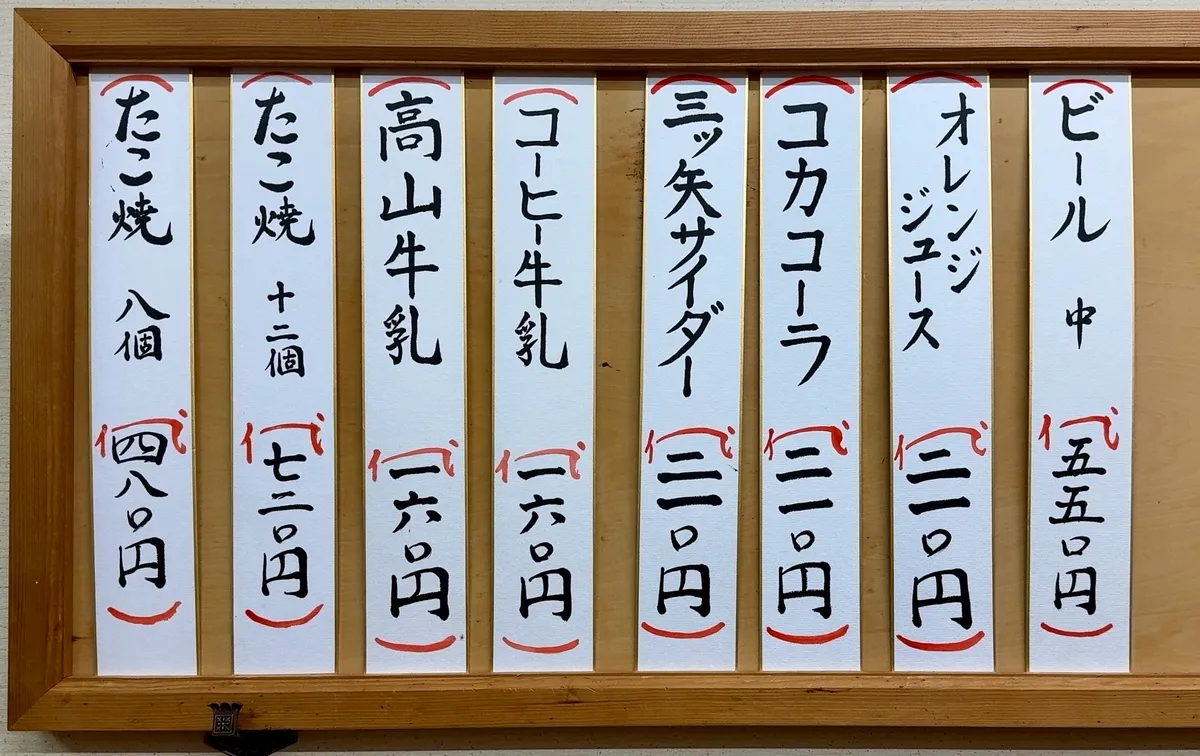 ビール 中 代 五五〇円
オレンジ
ジュース
代 二一〇円
コカコーラ 代 二一〇円
三ッ矢サイダー 代 二一〇円
コーヒー牛乳 代 一六〇円
高山牛乳 代 一六〇円
たこ焼 十二個 代 七二〇円
たこ焼 八個 代 四八〇円